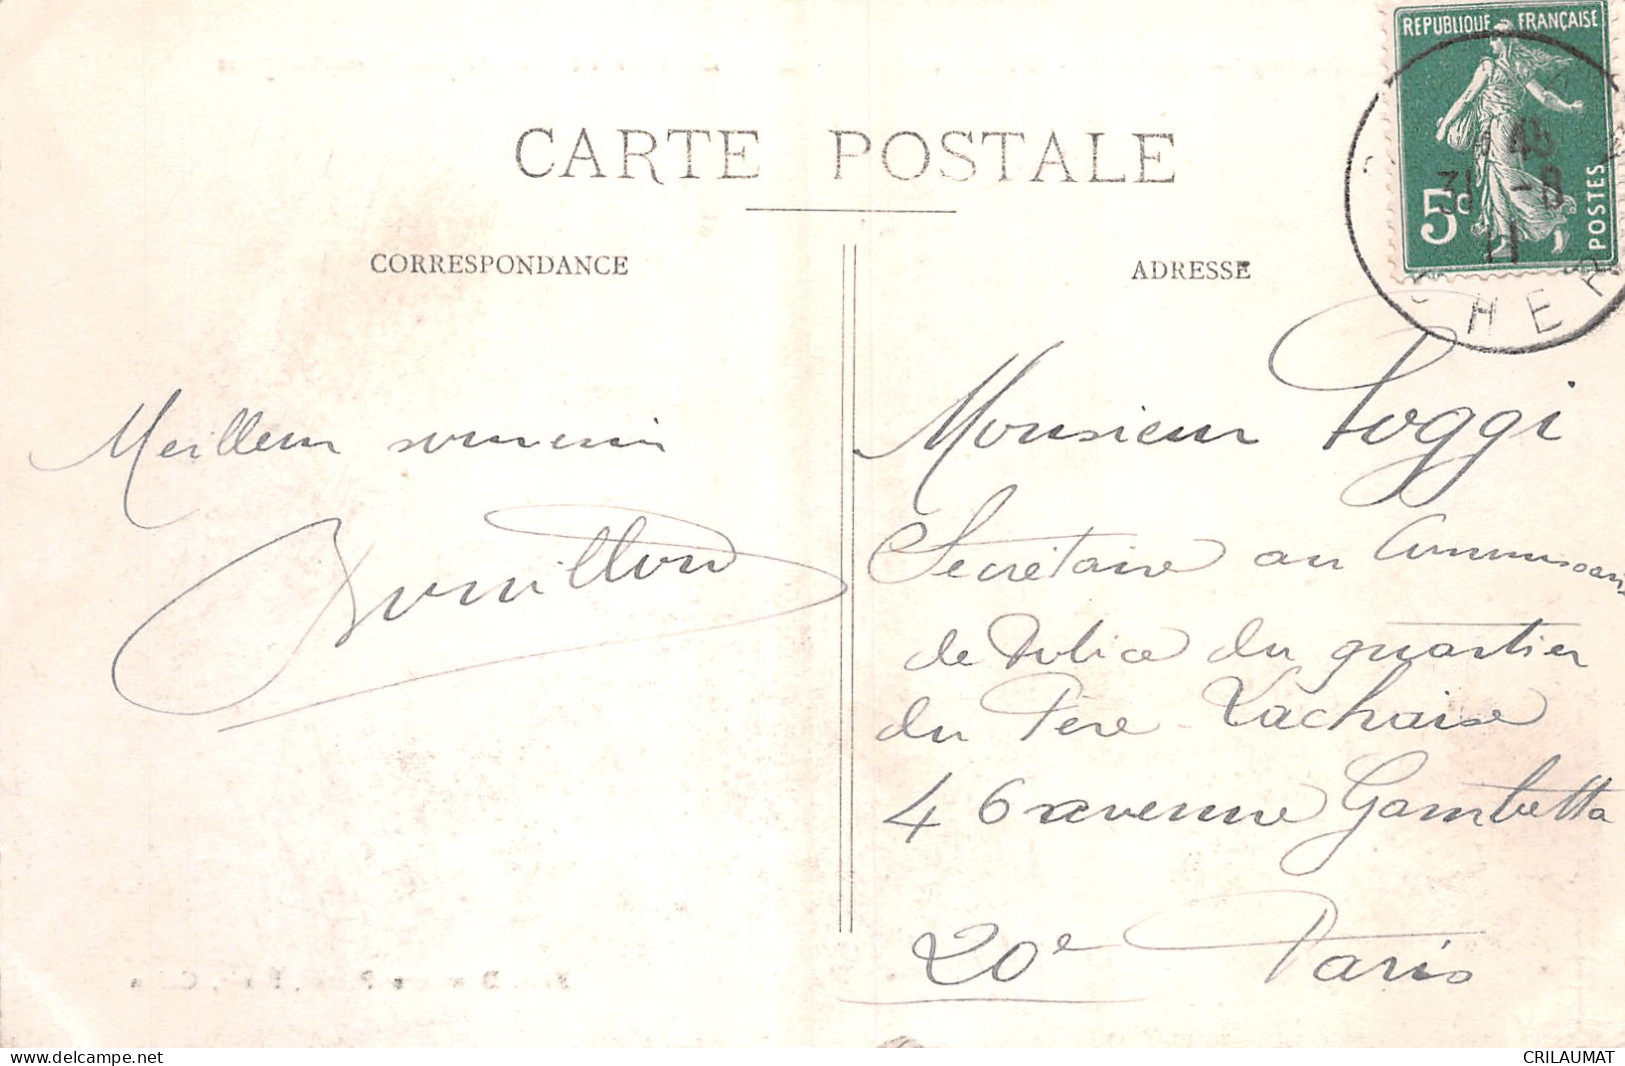 REPUBLIQUE FRANÇAISE
5c
POSTES
45
31 -8
11
CHER
CARTE POSTALE
CORRESPONDANCE
ADRESSE
Meilleur souvenir
Monsieur Poggi
Secrétaire au Commissariat
de Police du quartier
du Père-Lachaise
46 avenue Gambetta
20e Paris
www.delcampe.net
CRILAUMAT